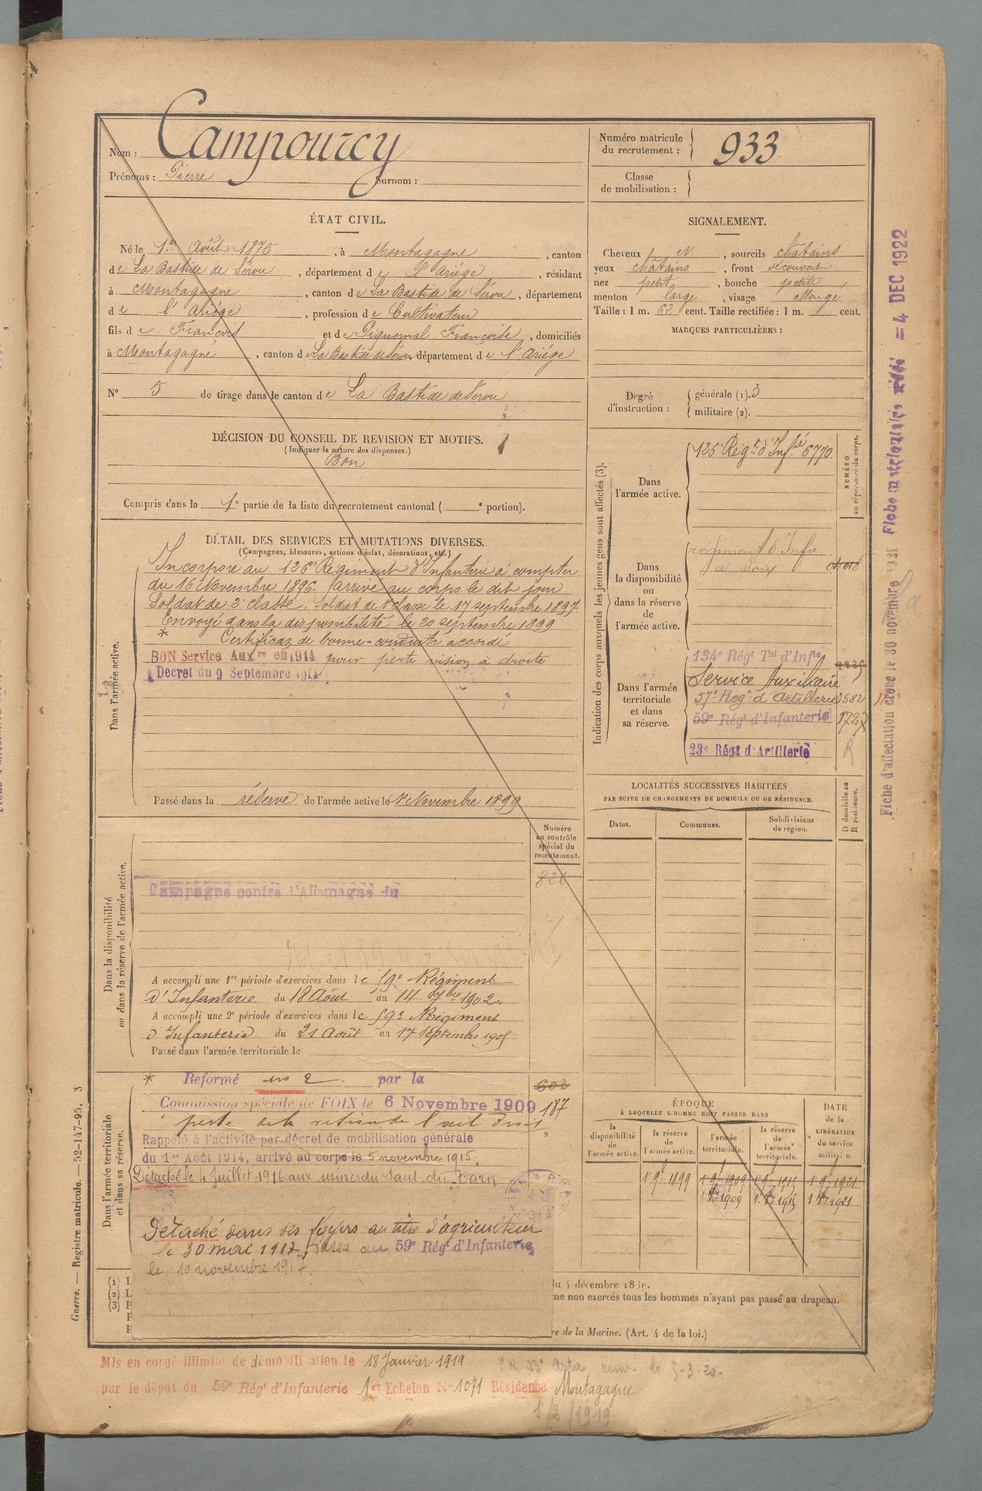 Nom : Campourcy
Prénoms : Pierre Surnom :
Numéro matricule du recrutement : 933
Classe de mobilisation :
ÉTAT CIVIL.
Né le 1er Août 1875, à Montagagne, canton
de La Bastide de Sérou, département de l'Ariège, résidant
à Montagagne, canton de La Bastide de Sérou, département
de l'Ariége, profession de Cultivateur
fils de François et de Piquemal Françoise, domiciliés
à Montagagne, canton de La Bastide de Sérou, département de l'Ariége
N° 5 de tirage dans le canton de La Bastide de Sérou
SIGNALEMENT.
Cheveux N, sourcils châtains
yeux châtains, front découvert
nez petit, bouche petite,
menton large, visage allongé
Taille : 1 m. 62 cent. Taille rectifiée : 1 m. cent.
MARQUES PARTICULIÈRES :
Degré d'instruction : générale (1). 3
militaire (2).
DÉCISION DU CONSEIL DE REVISION ET MOTIFS.
(Indiquer la nature des dispenses.)
Bon
Compris dans la 1e partie de la liste du recrutement cantonal ( e portion).
DÉTAIL DES SERVICES ET MUTATIONS DIVERSES.
(Campagnes, blessures, actions d'éclat, décorations, etc.)
Dans l'armée active.
Incorporé au 126e Régiment d'Infanterie à compter
du 16 Novembre 1896. Arrivé au corps le dit jour
Soldat de 2e classe. Soldat de 1e classe le 17 septembre 1897
Envoyé dans la disponibilité le 20 septembre 1899
* Certificat de bonne conduite accordé
BON Service Auxre en 1914 pour perte vision à droite
Décret du 9 Septembre 1914
Passé dans la réserve de l'armée active le 1er Novembre 1899
Indication des corps auxquels les jeunes gens sont affectés (3).
NUMÉRO au répertoire du corps.
Dans l'armée active.
126 Régt d'Infie 6770
Dans la disponibilité ou dans la réserve de l'armée active.
régiment d'Infie
à Foix
Dans l'armée territoriale et dans sa réserve.
134e Régt Tal d'Infie
Service Auxiliaire
57e Régt d'Artillerie
59e Régt d'Infanterie
23e Régt d'Artillerie
LOCALITÉS SUCCESSIVES HABITÉES
PAR SUITE DE CHANGEMENTS DE DOMICILE OU DE RÉSIDENCE.
Dates. Communes. Subdivisions de région.
D domicile ou R résidence.
Numéro au contrôle spécial du recrutement.
Dans la disponibilité ou dans la réserve de l'armée active.
Campagne contre l'Allemagne du
A accompli une 1re période d'exercices dans le 59e Régiment
d'Infanterie du 18 Août au 14 7bre 1902
A accompli une 2e période d'exercices dans le 59e Régiment
d'Infanterie du 21 Août au 17 Septembre 1905
Passé dans l'armée territoriale le
Dans l'armée territoriale et dans sa réserve.
* Reformé n° 2 par la
Commission spéciale de FOIX le 6 Novembre 1909
187
Rappelé à l'activité par décret de mobilisation générale
du 1er Août 1914, arrivé au corps le 5 novembre 1915.
Détaché le 4 juillet 1916 aux usines du Saut du Tarn
Détaché dans ses foyers au titre d'agriculteur
le 30 mai 1917, passé au 59e Régt d'Infanterie
le 10 novembre 1917.
ÉPOQUE
À LAQUELLE L'HOMME DOIT PASSER DANS
la disponibilité de l'armée active.
la réserve de l'armée active.
l'armée territoriale.
la réserve de l'armée territoriale.
DATE de la LIBÉRATION du service militaire.
(1)
(2)
(3)
me non exercés tous les hommes n'ayant pas passé au drapeau.
de la Marine. (Art. 4 de la loi.)
Mis en congé illimité de démobilisation le 18 Janvier 1919
par le dépôt du 59e Régt d'Infanterie 1er Echelon N° 1071 Résidence Montagagne
Guerre. — Registre matricule. — 52-147-95. 3